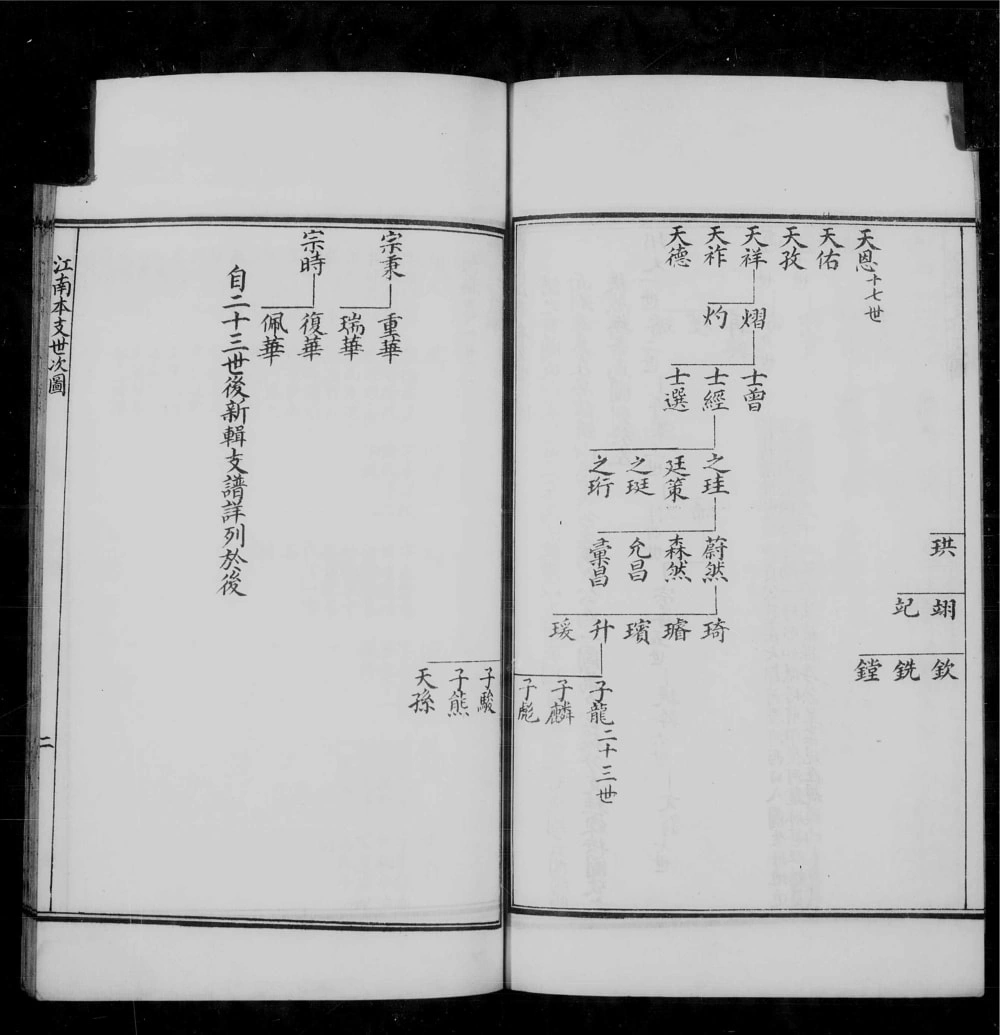 珙
翊
玘
欽
銑
鏜
天恩十七世
天佑
天孜
天祥
天祚
天德
熠
灼
士曾
士經
士選
之珪
廷策
之珽
之珩
蔚然
森然
允昌
彙昌
琦
璿
璸
升
瑗
子龍二十三世
子麟
子彪
子駿
子熊
天孫
宗秉
宗時
重華
瑞華
復華
佩華
自二十三世後新輯支譜詳列於後
江南本支世次圖
二